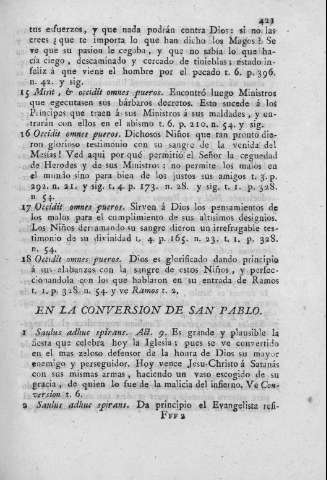 421
tus esfuerzos, y que nada podrán contra Dios: si no las
crees ¿que te importa lo que han dicho los Magos? Se
ve que su pasion le cegaba, y que no sabía lo que ha-
cia ciego, descaminado y cercado de tinieblas: estado in-
feliz á que viene el hombre por el pecado t. 6. p. 396.
n. 42. y sig.
15 Misit, & occidit omnes pueros. Encontró luego Ministros
que egecutasen sus bárbaros decretos. Esto sucede á los
Príncipes que traen á sus Ministros á sus maldades, y en-
trarán con ellos en el abismo t. 6. p. 210. n. 54. y sig.
16 Occidit omnes pueros. Dichosos Niños que tan pronto die-
ron glorioso testimonio con su sangre de la venida del
Mesías! Ved aquí por qué permitió el Señor la ceguedad
de Herodes y de sus Ministros: no permite los malos en
el mundo sino para bien de los justos sus amigos t. 3. p.
292. n. 21. y sig. t. 4. p. 173. n. 28. y sig. t. 1. p. 328.
n. 54.
17 Occidit omnes pueros. Sirven á Dios los pensamientos de
los malos para el cumplimiento de sus altísimos designios.
Los Niños derramando su sangre dieron un irrefragable tes-
timonio de su divinidad t. 4. p. 165. n. 23. t. 1. p. 328.
n. 54.
18 Occidit omnes pueros. Dios es glorificado dando principio
á sus alabanzas con la sangre de estos Niños, y perfec-
cionandola con los que hablaron en su entrada de Ramos
t. 1. p. 328. n. 54. y ve Ramos t. 2.
EN LA CONVERSION DE SAN PABLO.
1 Saulus adhuc spirans. Act. 9. Es grande y plausible la
fiesta que celebra hoy la Iglesia: pues se ve convertido
en el mas zeloso defensor de la honra de Dios su mayor
enemigo y perseguidor. Hoy vence Jesu-Christo á Satanás
con sus mismas armas, haciendo un vaso escogido de su
gracia, de quien lo fue de la malicia del infierno. Ve Con-
version t. 6.
2 Saulus adhuc spirans. Da principio el Evangelista refi-
Fff 2